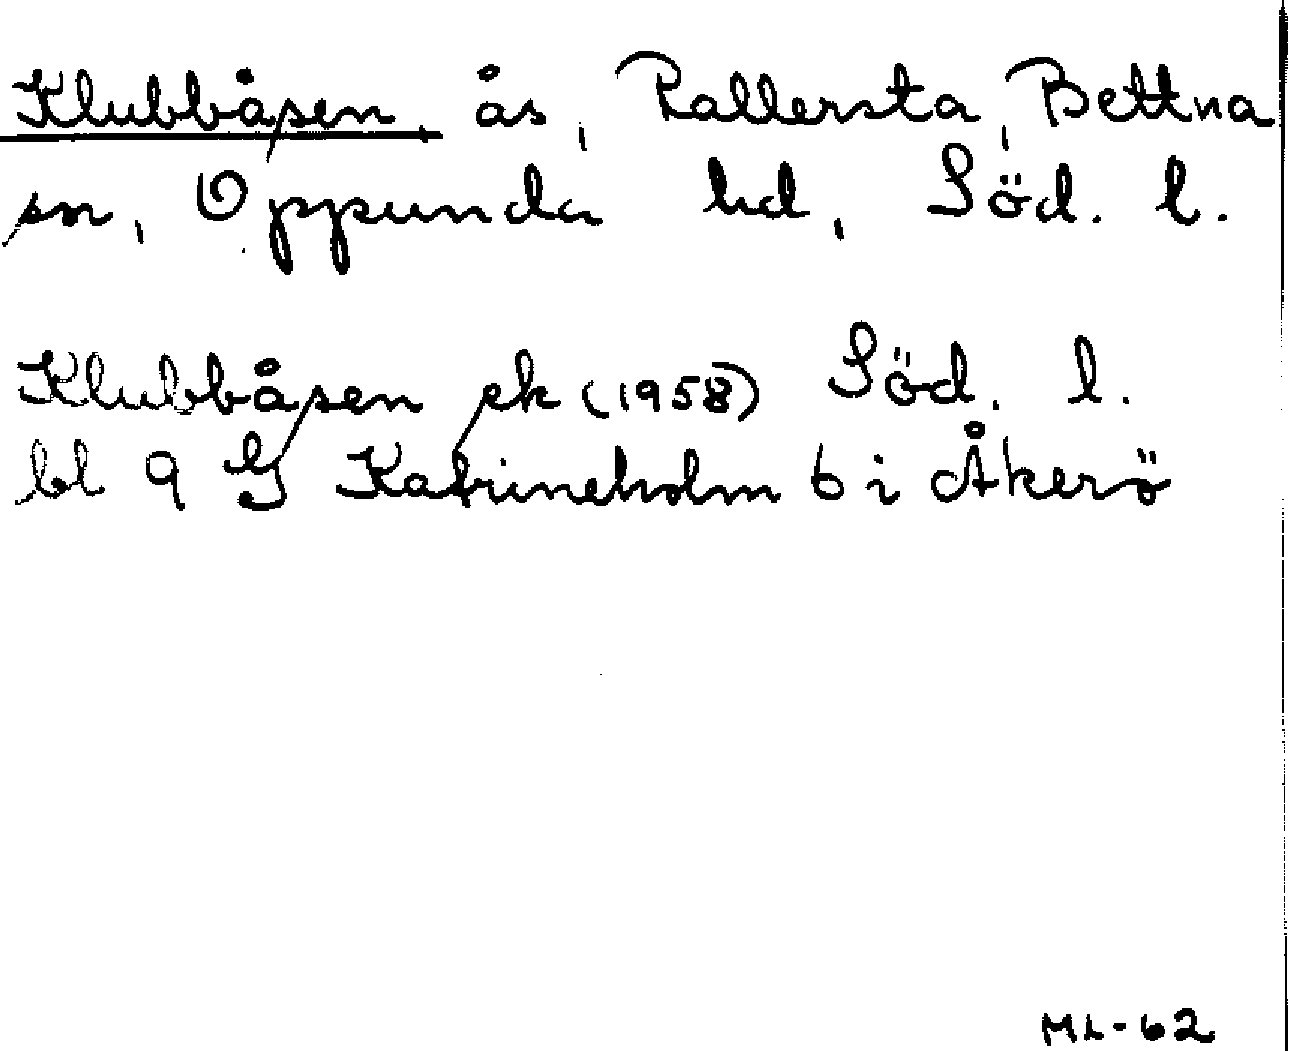 Klubbåsen, ås, Rallersta, Bettna
sn, Oppunda hd, Söd. l.
Klubbåsen ek (1958) Söd. l.
bl 9 G Katrineholm 6 i Åkerö
ML-62